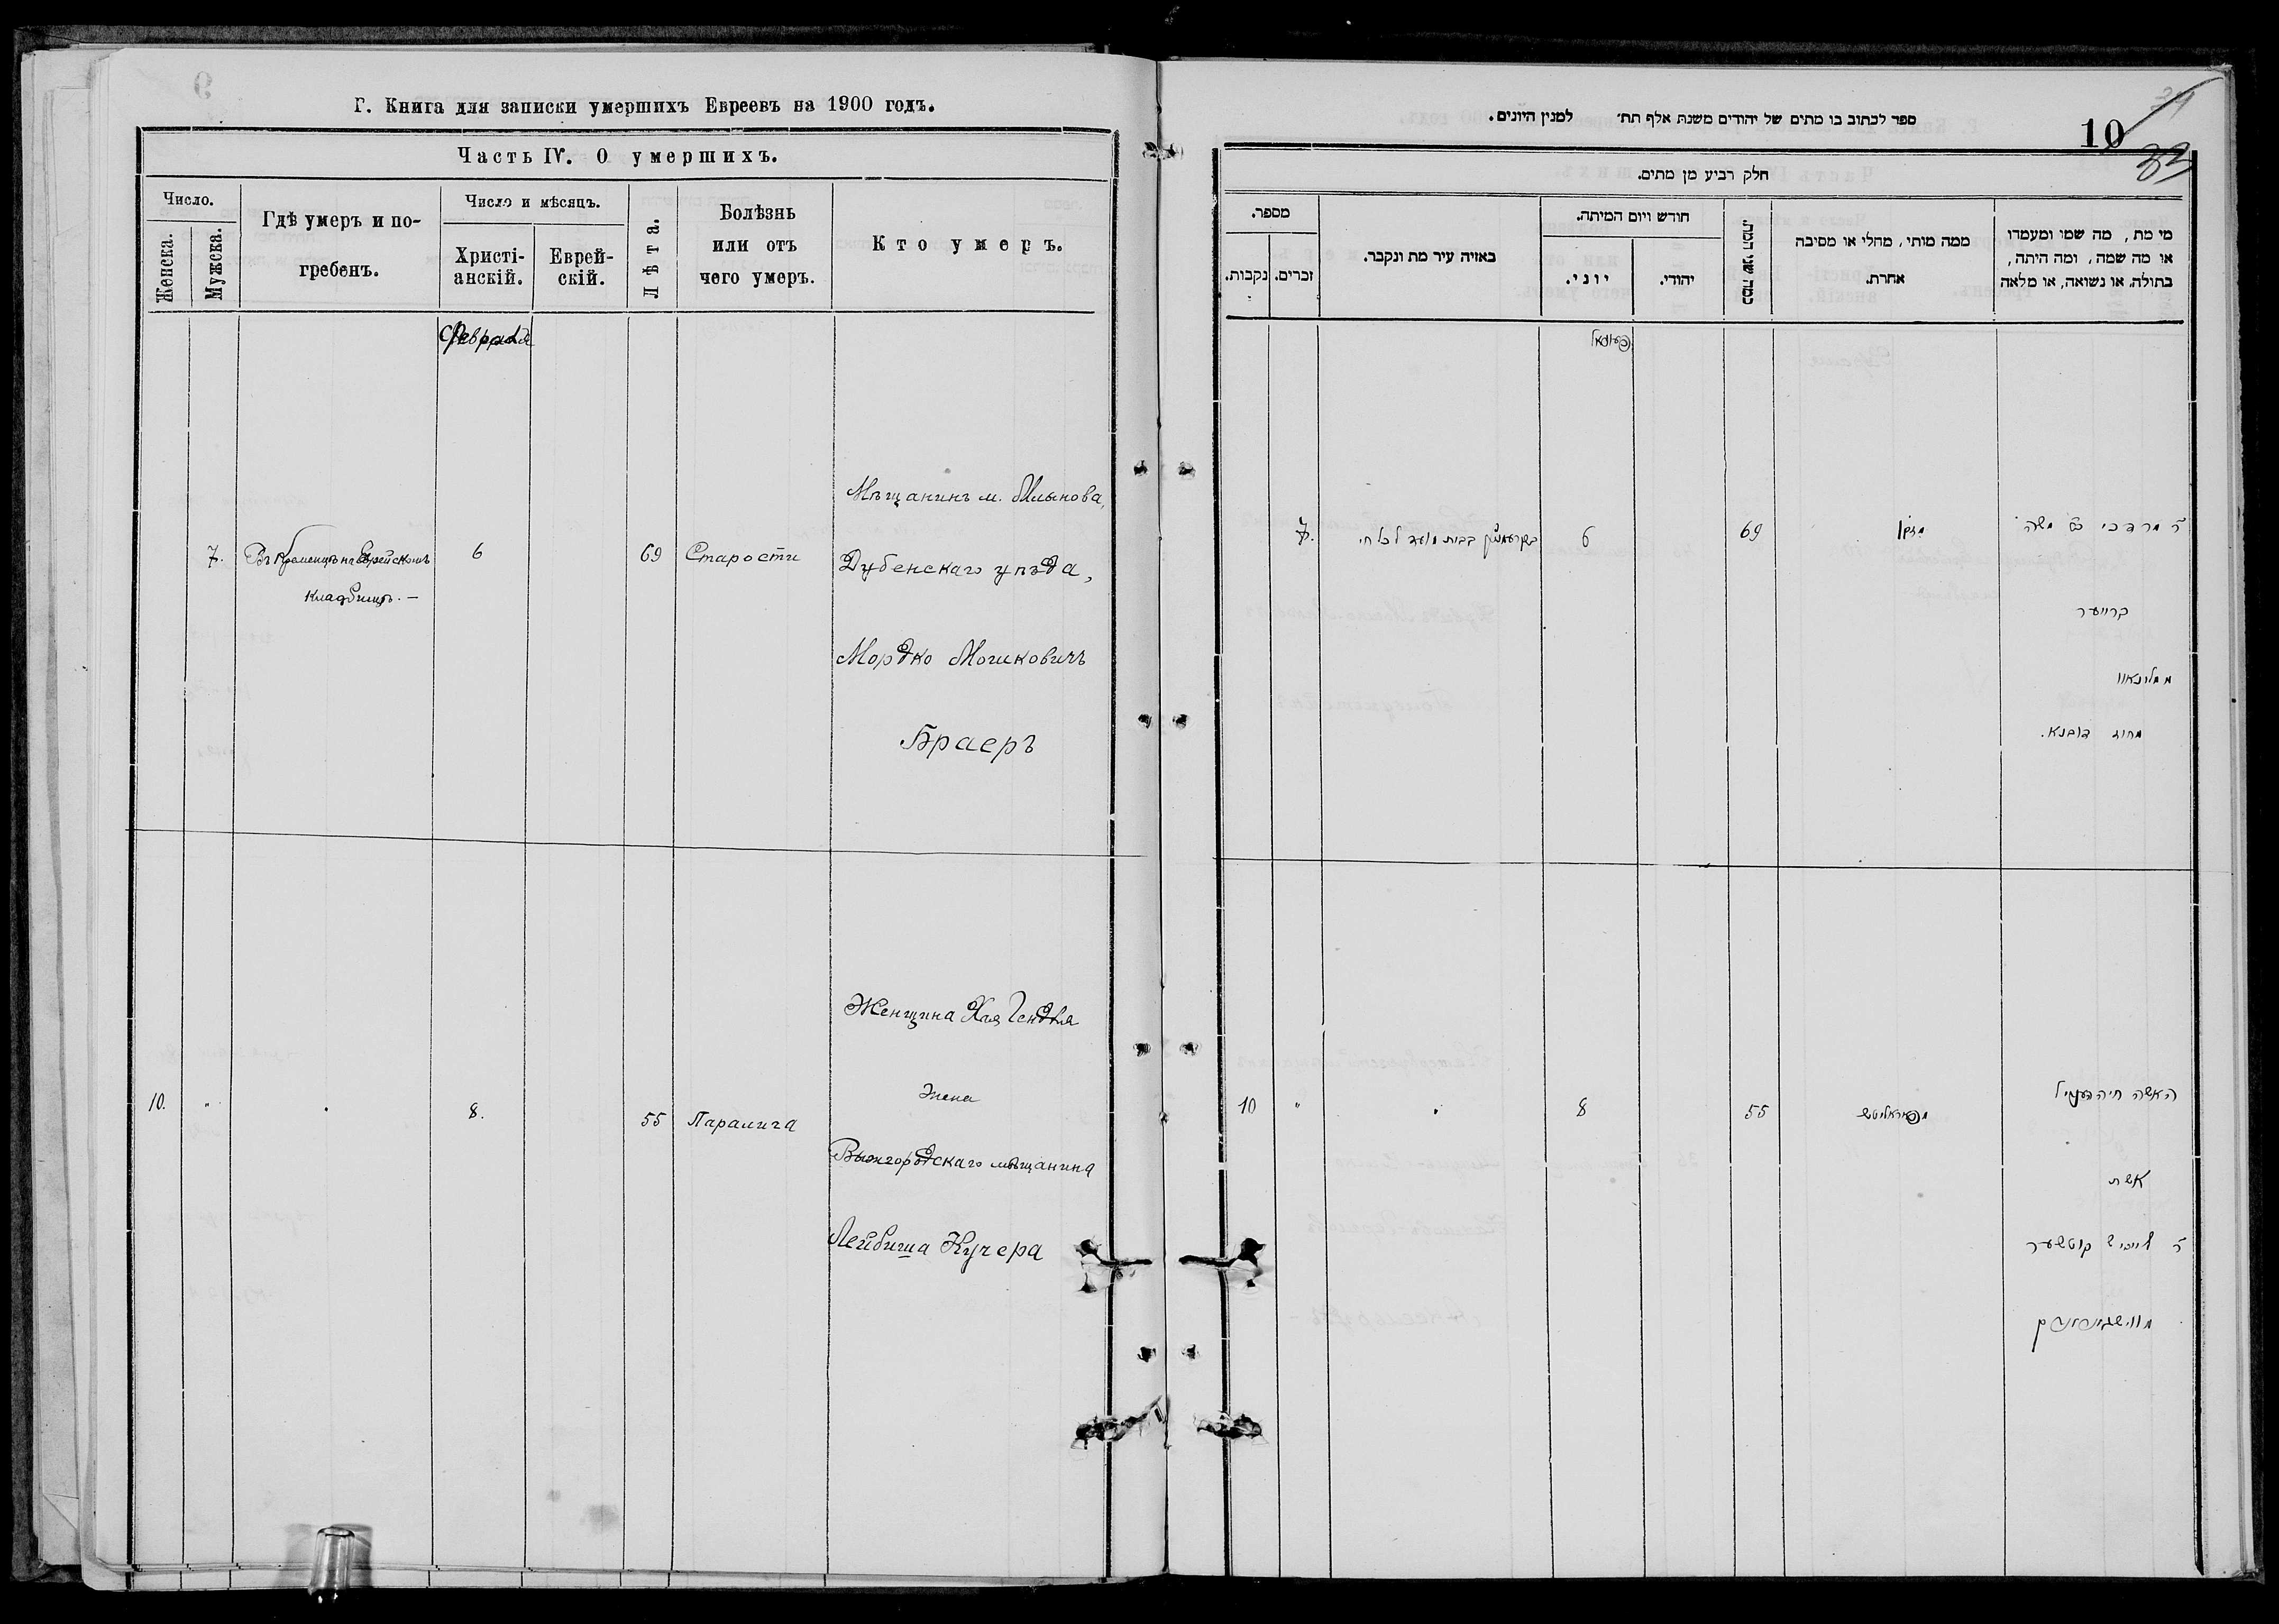 Г. Книга для записки умершихъ Евреевъ на 1900 годъ.
Часть IV. О умершихъ.
Число.
Женска.
Мужска.
Гдѣ умеръ и по-
гребенъ.
Число и мѣсяцъ.
Христі-
анскій.
Еврей-
скій.
Лѣта.
Болѣзнь
или отъ
чего умеръ.
Кто умеръ.
Февраля
7.
Въ Кременцѣ на Еврейскомъ
кладбищѣ. —
6
69
Старости
Мѣщанинъ м. Млынова,
Дубенскаго уѣзда,
Мордко Мошковичъ
Браеръ
10.
"
8.
55
Паралича
Женщина Хая Гендля
Жена
Вышгородскаго мѣщанина
Лейбиша Кучера
ספר לכתוב בו מתים של יהודים משנת אלף תת׳ למנין היונים.
10
33
חלק רביע מן מתים.
מספר.
נקבות.
זכרים.
באזיה עיר מת ונקבר.
חודש ויום המיתה.
יוני.
יהודי.
כמה שני המת.
ממה מותי, מחלי או מסיבה
אחרת.
מי מת, מה שמו ומעמדו
או מה שמה, ומה היתה,
בתולה, או נשואה, או מלאה
7.
בקרעמניץ בבית מועד לכל חי.
6
69
מזקן
ר׳ מרדכי ב״ר משה
ברייער
ממלינאוו
מחוז דובנא.
10
"
8
55
מפאראליטש
האשה חיה הענדיל
אשת
ר׳ לייביש קוטשער